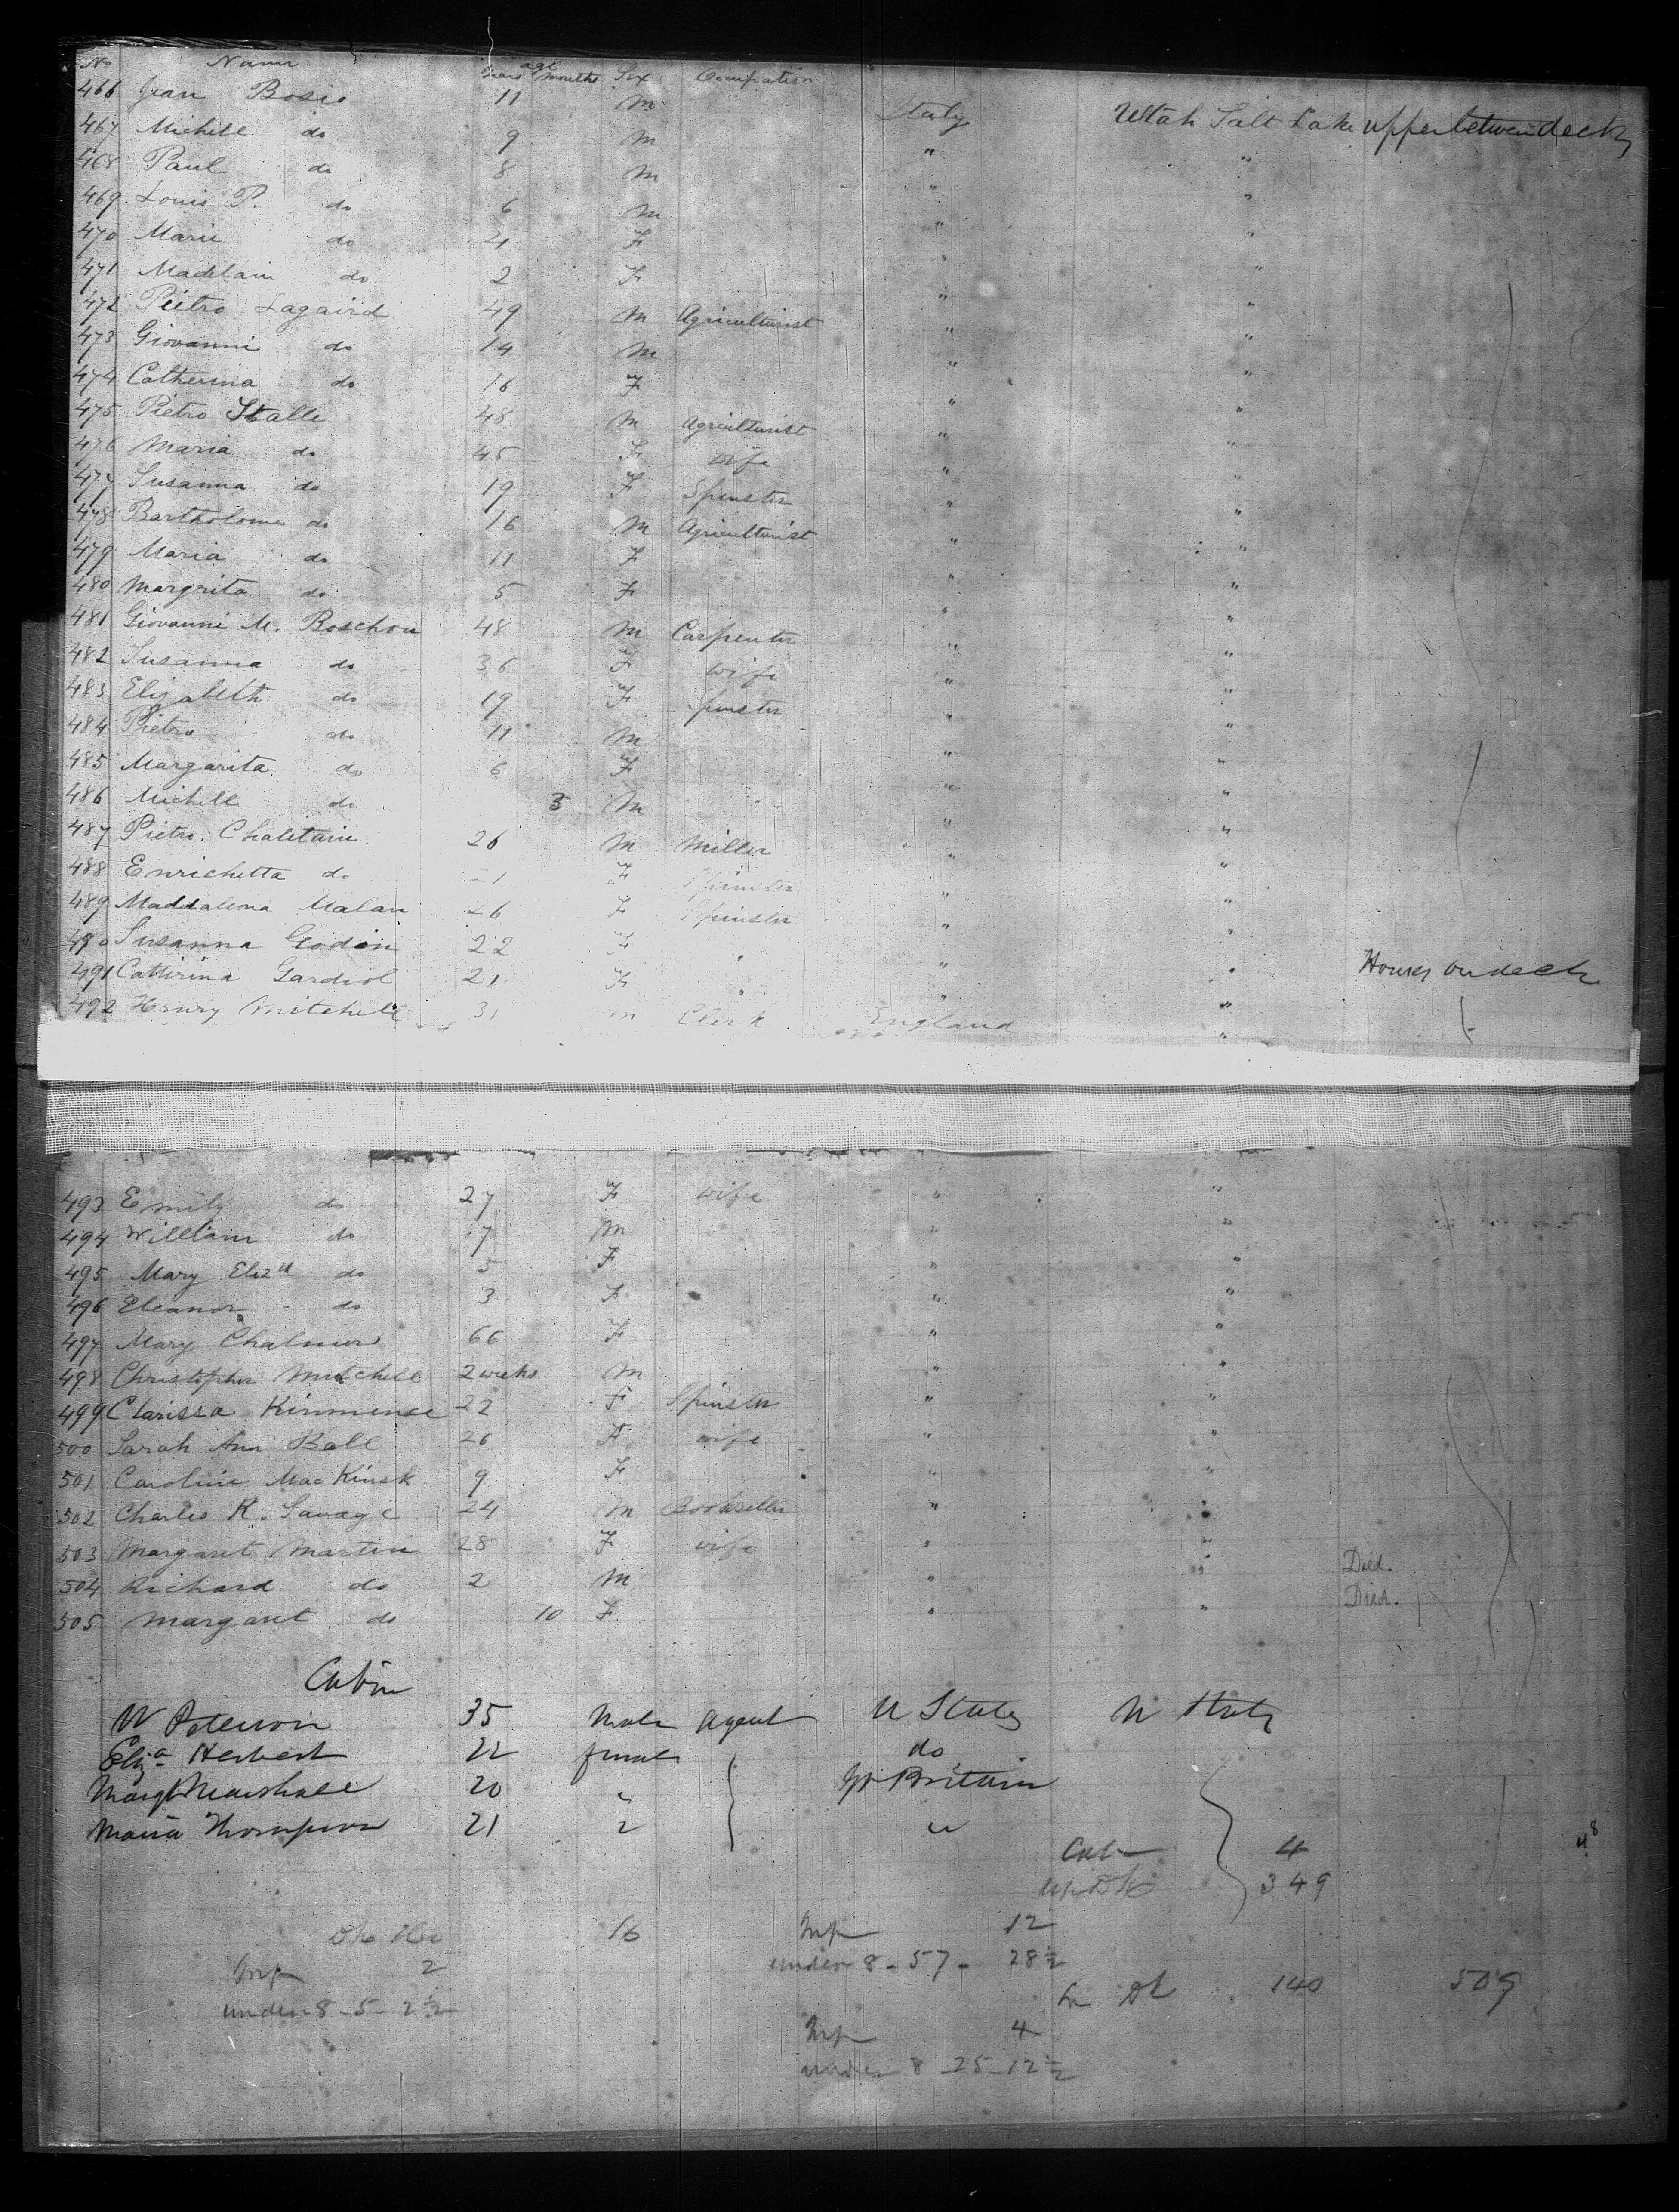 No Name age Years Months Sex Occupation
466 Jean Bosio 11 M Italy Utah Salt Lake upper between decks
467 Michele do 9 M " "
468 Paul do 8 M " "
469 Louis P. do 6 M " "
470 Marie do 4 F " "
471 Madelain do 2 F " "
472 Pietro Lagaird 49 M Agriculturist " "
473 Giovanni do 14 M " "
474 Catherina do 16 F " "
475 Pietro Stalle 48 M Agriculturist " "
476 Maria do 45 F wife " "
477 Susanna do 19 F Spinster " "
478 Bartholome do 16 M Agriculturist " "
479 Maria do 11 F " "
480 Margrita do 5 F " "
481 Giovanni M. Boschon 48 M Carpenter " "
482 Susanna do 36 F wife " "
483 Elizabeth do 19 F spinster " "
484 Pietro do 11 M " "
485 Margarita do 6 F " "
486 Michele do 3 M " "
487 Pietro Chaletain 26 M Miller " "
488 Enrichetta do F Spinster " "
489 Maddalena Malan 26 F Spinster " "
490 Susanna Godin 22 F " " "
491 Catterina Gardiol 21 F " " " Houses on deck
492 Henry Mitchell 31 M Clerk England "
493 Emily do 27 F wife " "
494 William do 7 M " "
495 Mary Elizth do 5 F " "
496 Eleanor do 3 F " "
497 Mary Chalmers 66 F " "
498 Christopher Mitchell 2 weeks M " "
499 Clarissa Kinmince 22 F Spinster " "
500 Sarah Ann Ball 26 F wife " "
501 Caroline MacKinsk 9 F " "
502 Charles R. Savage 24 M Bookseller " "
503 Margaret Martin 28 F wife " "
504 Richard do 2 M " " Died.
505 Margaret do 10 F " " Died.
Cabin
W Peterson 35 Male Agent U States U States
Eliza Herbert 22 female do
Margt Marshall 20 " Gt Britain
Maria Thompson 21 " "
4 48
349
16 Inf 12
Inf 2 under 8 - 57 - 28½
under 8 - 5 - 2½ 140 509
Inf 4
under 8 - 25 - 12½